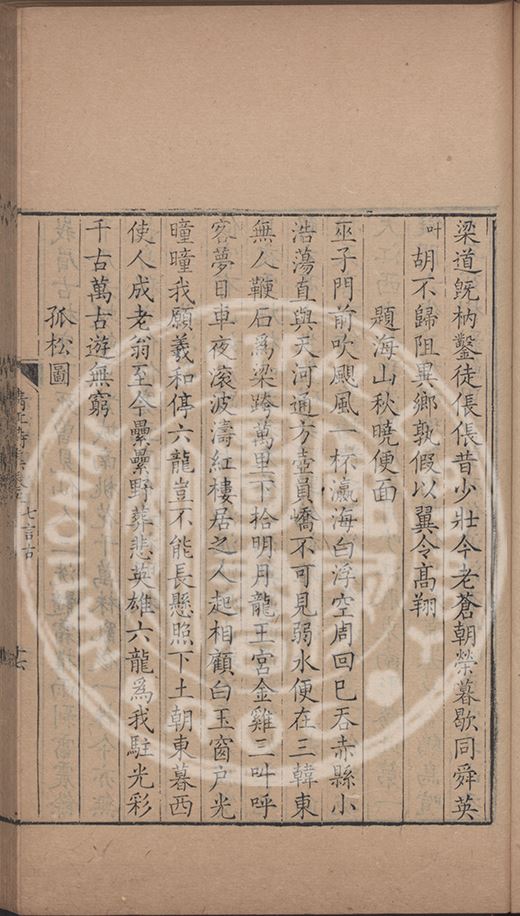 梁道既枘鑿徒倀倀昔少壯今老蒼朝榮暮歇同舜英
叶胡不歸阻異鄉孰假以翼令高翔
題海山秋曉便面
巫子門前吹颶風一杯瀛海白浮空周回已吞赤縣小
浩蕩直與天河通方壺員嶠不可見弱水便在三韓東
無人鞭石爲梁跨萬里下拾明月龍王宮金雞三叫呼
客夢日車夜滚波濤紅樓居之人起相顧白玉窗户光
曈曈我願羲和停六龍豈不能長懸照下土朝東暮西
使人成老翁至今纍纍野葬悲英雄六龍爲我駐光彩
千古萬古遊無窮
孤松圖
七言古